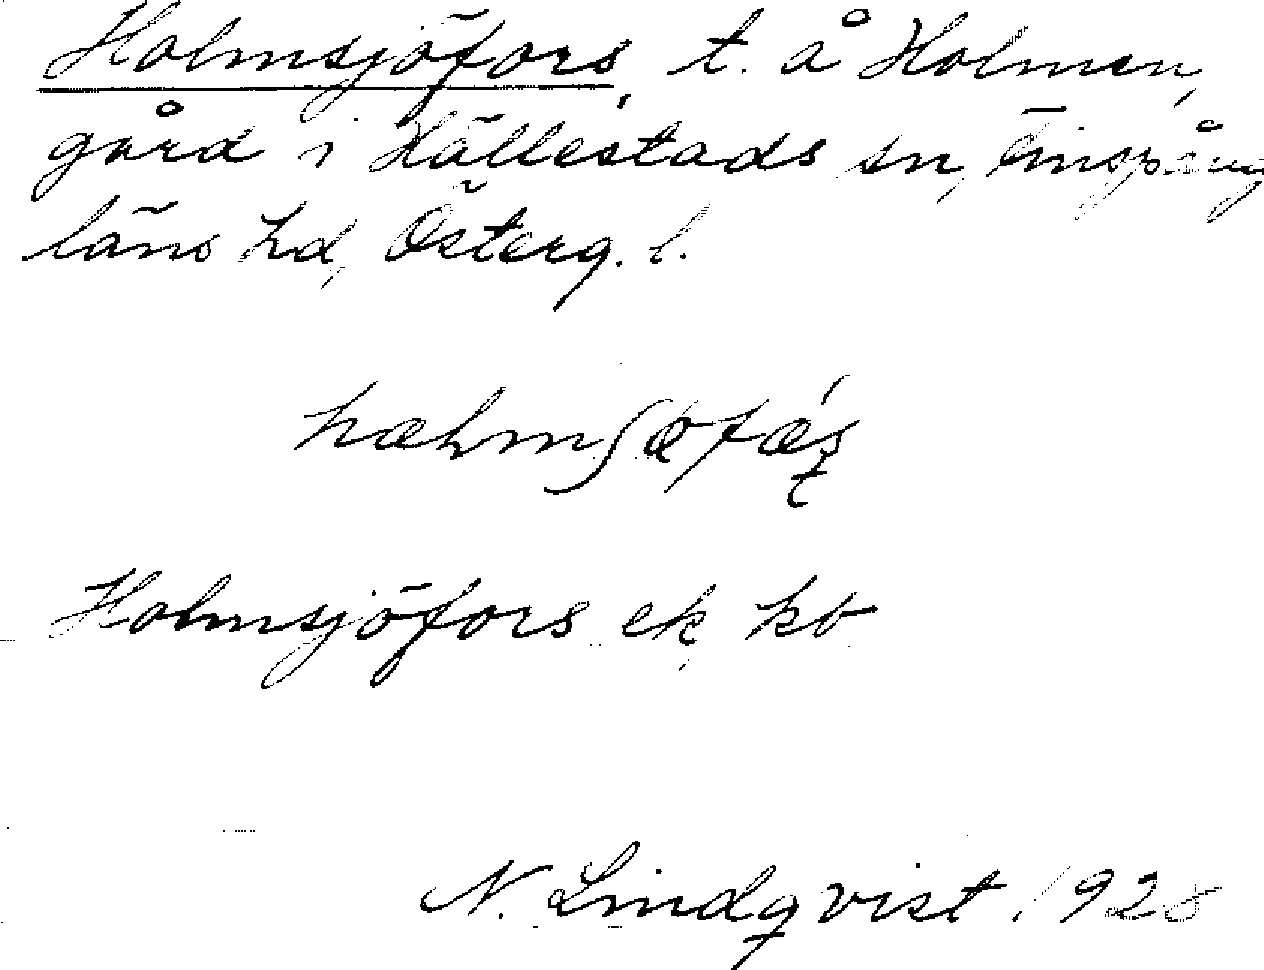 Holmsjöfors, t. å Holmen,
gård i Hällestads sn, Finspång
läns hd, Österg. l.
Holmsjöfors ek kb
N. Lindqvist 1928